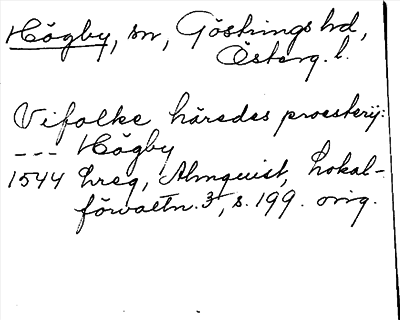 Högby, sn, Göstrings hd,
Österg. l.
Vifolke häredes proesterij:
--- Högby
1544 hreg, Almquist, Lokal-
förvaltn. 3, s. 199. orig.